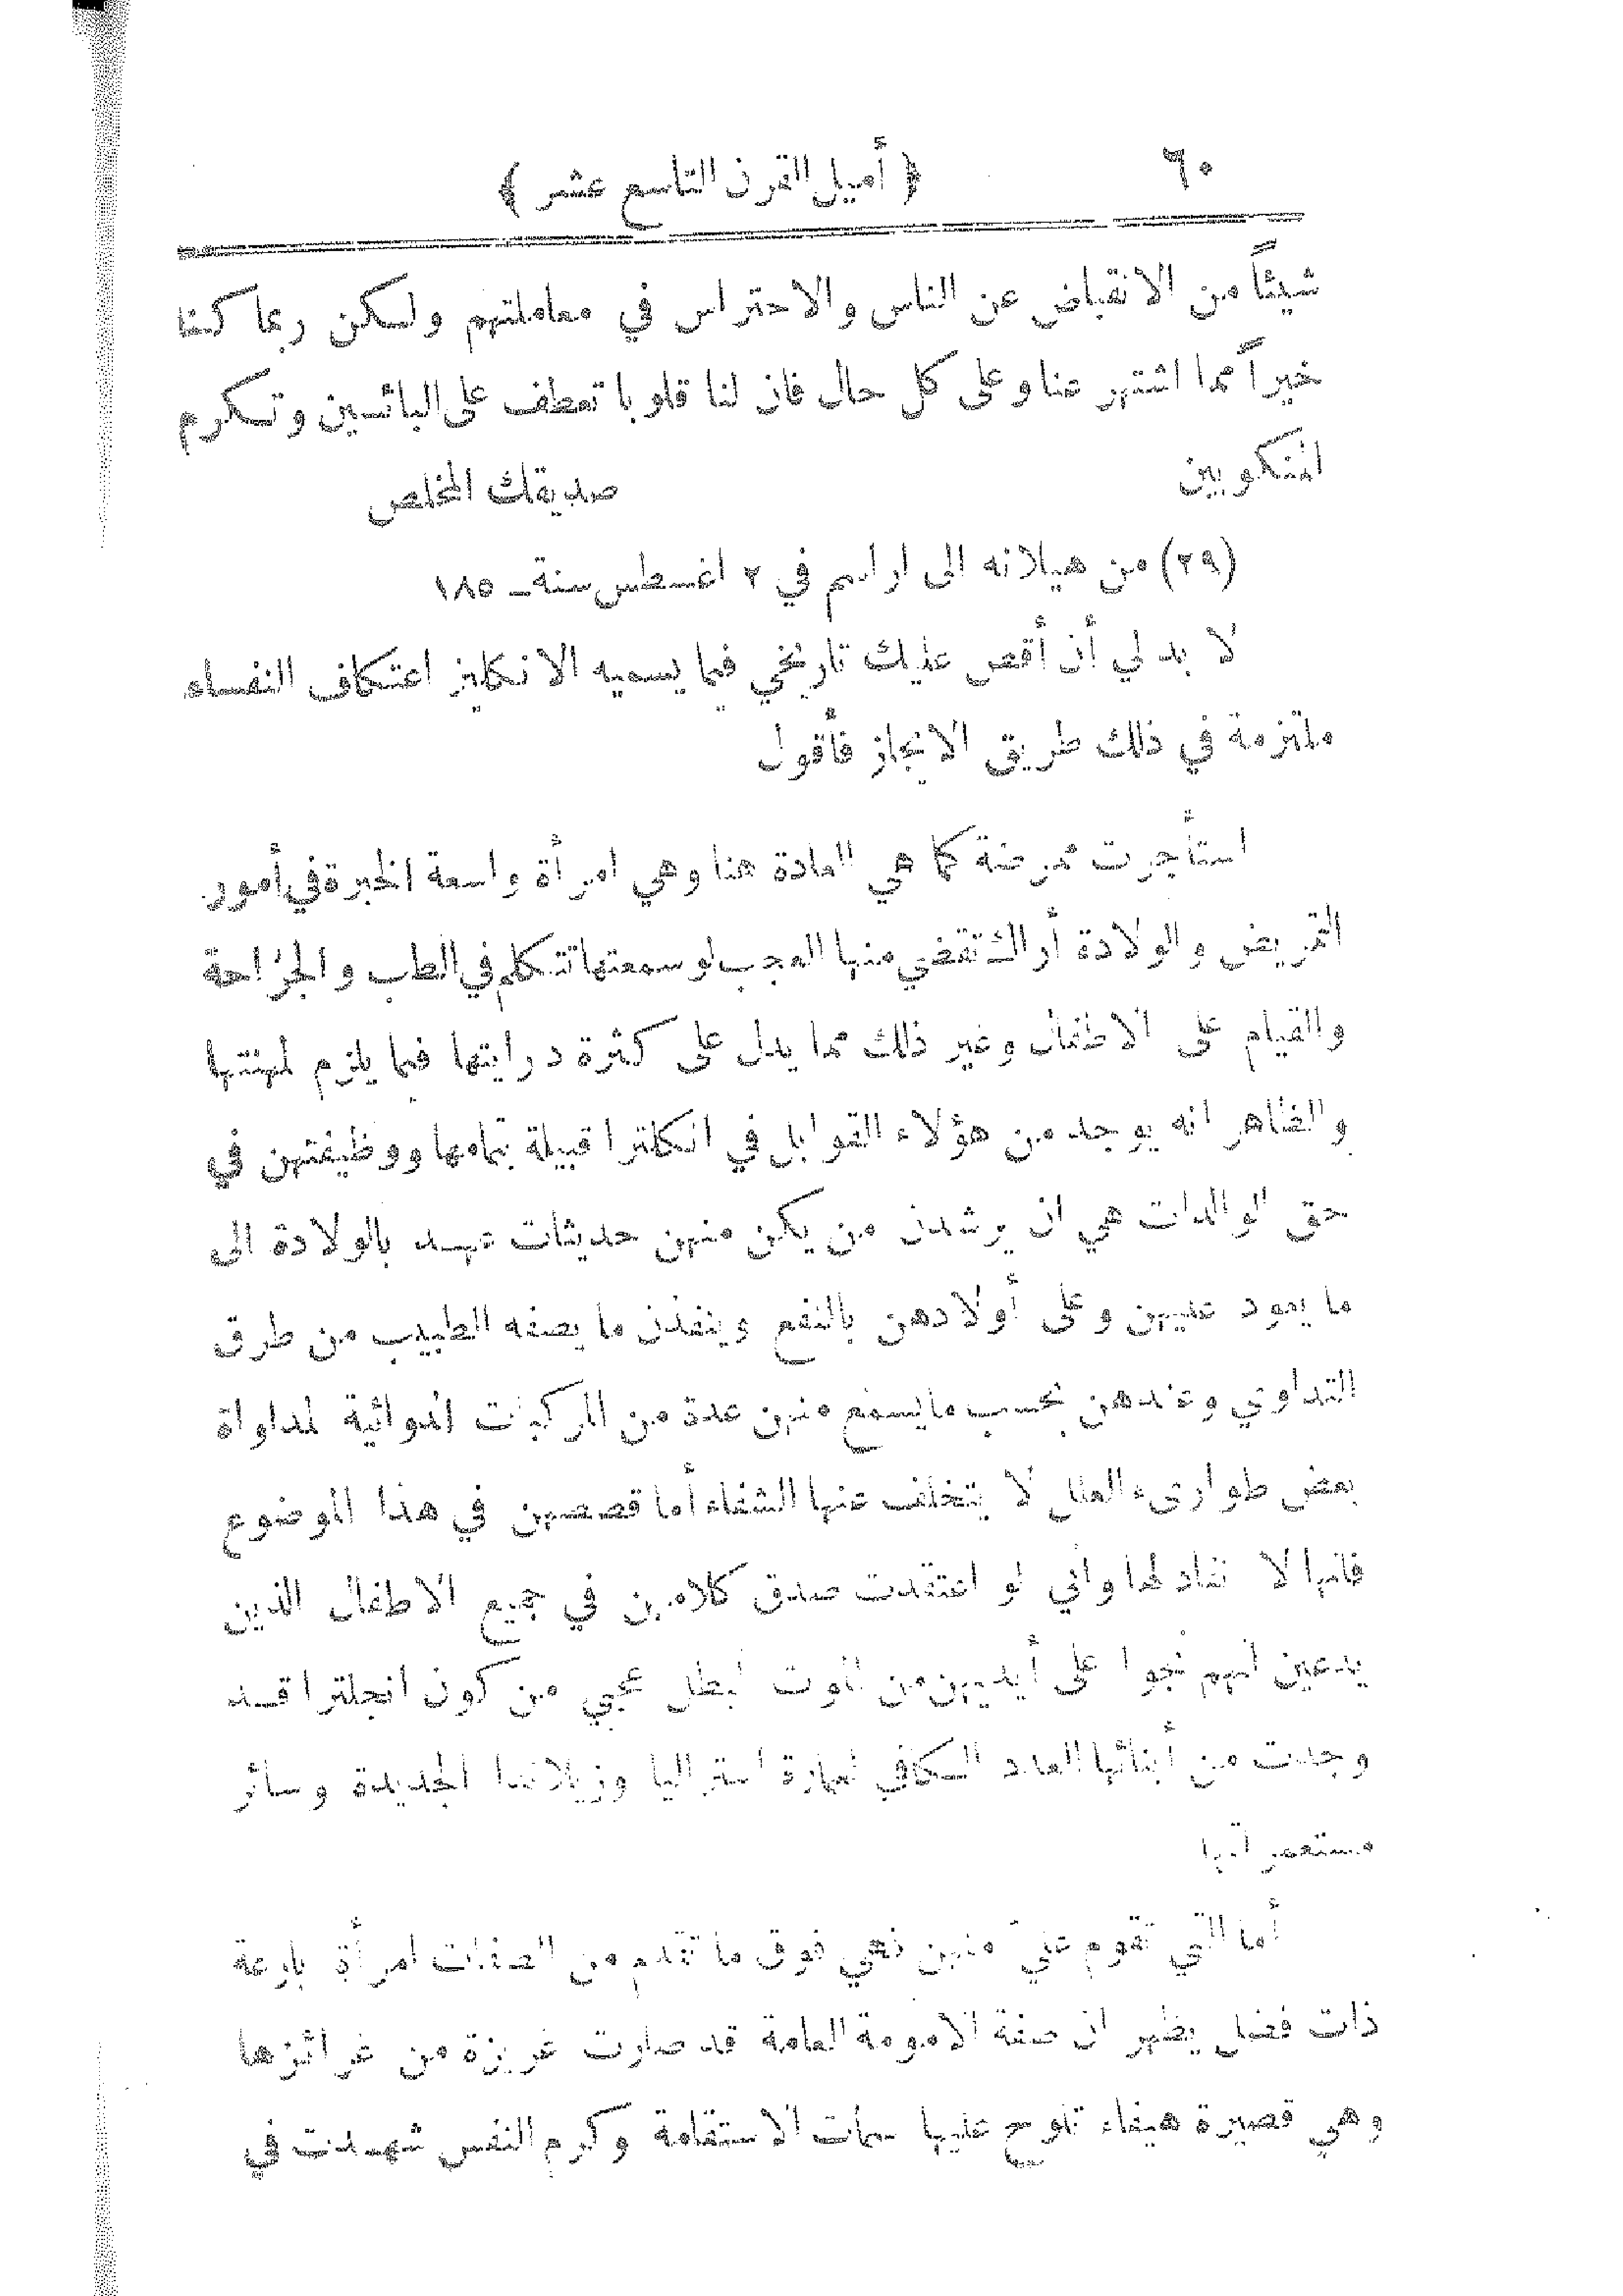 ٦٠ ﴿ أميل القرن التاسع عشر ﴾
شيئاً من الانقباض عن الناس والاحتراس في معاملتهم ولكن ربما كنا
خيراً مما اشتهر عنا وعلى كل حال فان لنا قلوبا تعطف على البائسين وتكرم
المنكوبين صديقك المخلص
(٢٩) من هيلانه الى اراسم في ٢ اغسطس سنة ـ ١٨٥
لا بد لي أن أقص عليك تاريخي فيما يسميه الانكليز اعتكاف النفساء
ملتزمة في ذلك طريق الايجاز فأقول
استأجرت ممرضة كما هي العادة هنا وهي امرأة واسعة الخبرة في أمور
التمريض والولادة أراك تقضي منها العجب لو سمعتها تتكلم في الطب والجراحة
والقيام على الاطفال وغير ذلك مما يدل على كثرة درايتها فيما يلزم لمهنتها
والظاهر انه يوجد من هؤلاء القوابل في انكلترا قبيلة بتمامها ووظيفتهن في
حق الوالدات هي ان يرشدن من يكن منهن حديثات عهد بالولادة الى
ما يعود عليهن وعلى أولادهن بالنفع وينفذن ما يصفه الطبيب من طرق
التداوي وعندهن بحسب ما يسمع منهن عدة من المركبات الدوائية لمداواة
بعض طوارىء العلل لا يتخلف عنها الشفاء أما قصصهن في هذا الموضوع
فانها لا نفاد لها واني لو اعتقدت صدق كلامهن في جميع الاطفال الذين
يدعين انهم نجوا على أيديهن من الموت لبطل عجبي من كون انجلترا قد
وجدت من أبنائها العدد الكافي لعمارة استراليا وزيلاندا الجديدة وسائر
مستعمراتها
أما التي تقوم عليّ منهن فهي فوق ما تقدم من الصفات امرأة بارعة
ذات فضل يظهر ان صفة الامومة العامة قد صارت غريزة من غرائزها
وهي قصيرة هيفاء تلوح عليها سمات الاستقامة وكرم النفس شهدت في